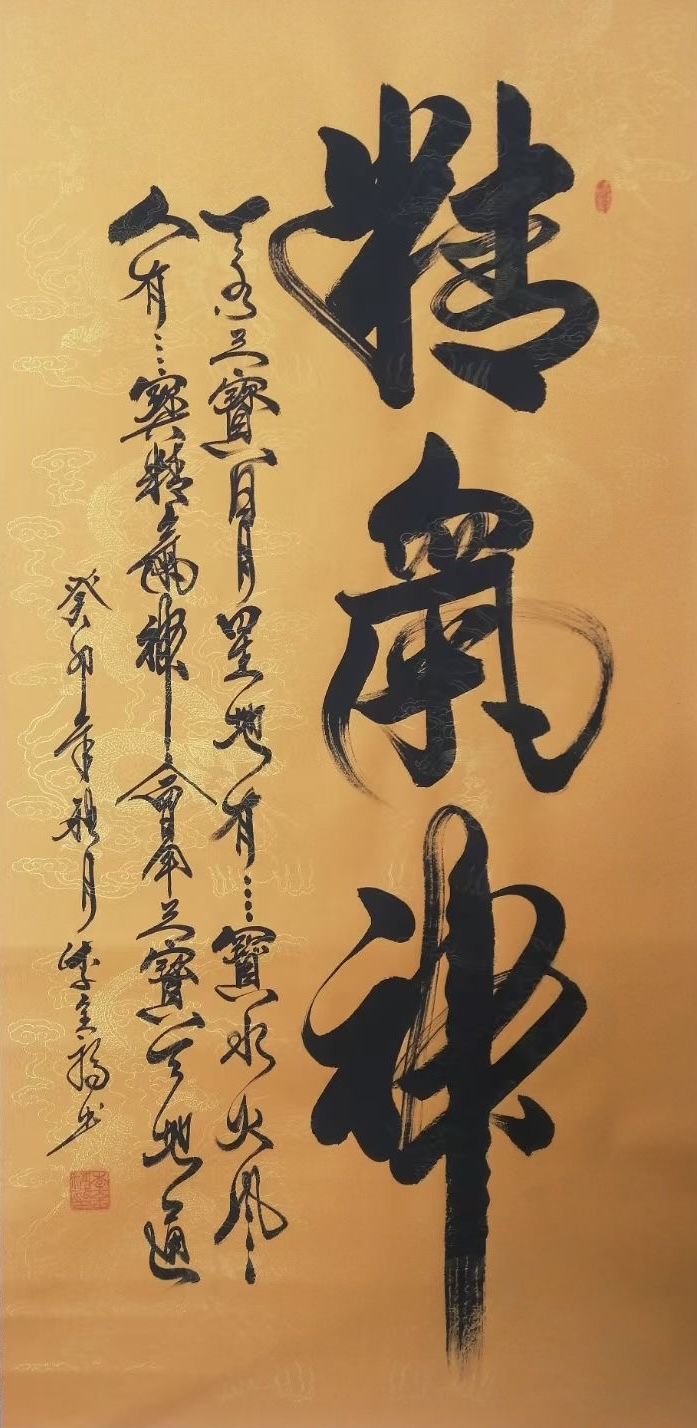 精氣神
天有三寶日月星地有三寶水火風
人有三寶精氣神會用三寶天地通
癸卯年秋月李书